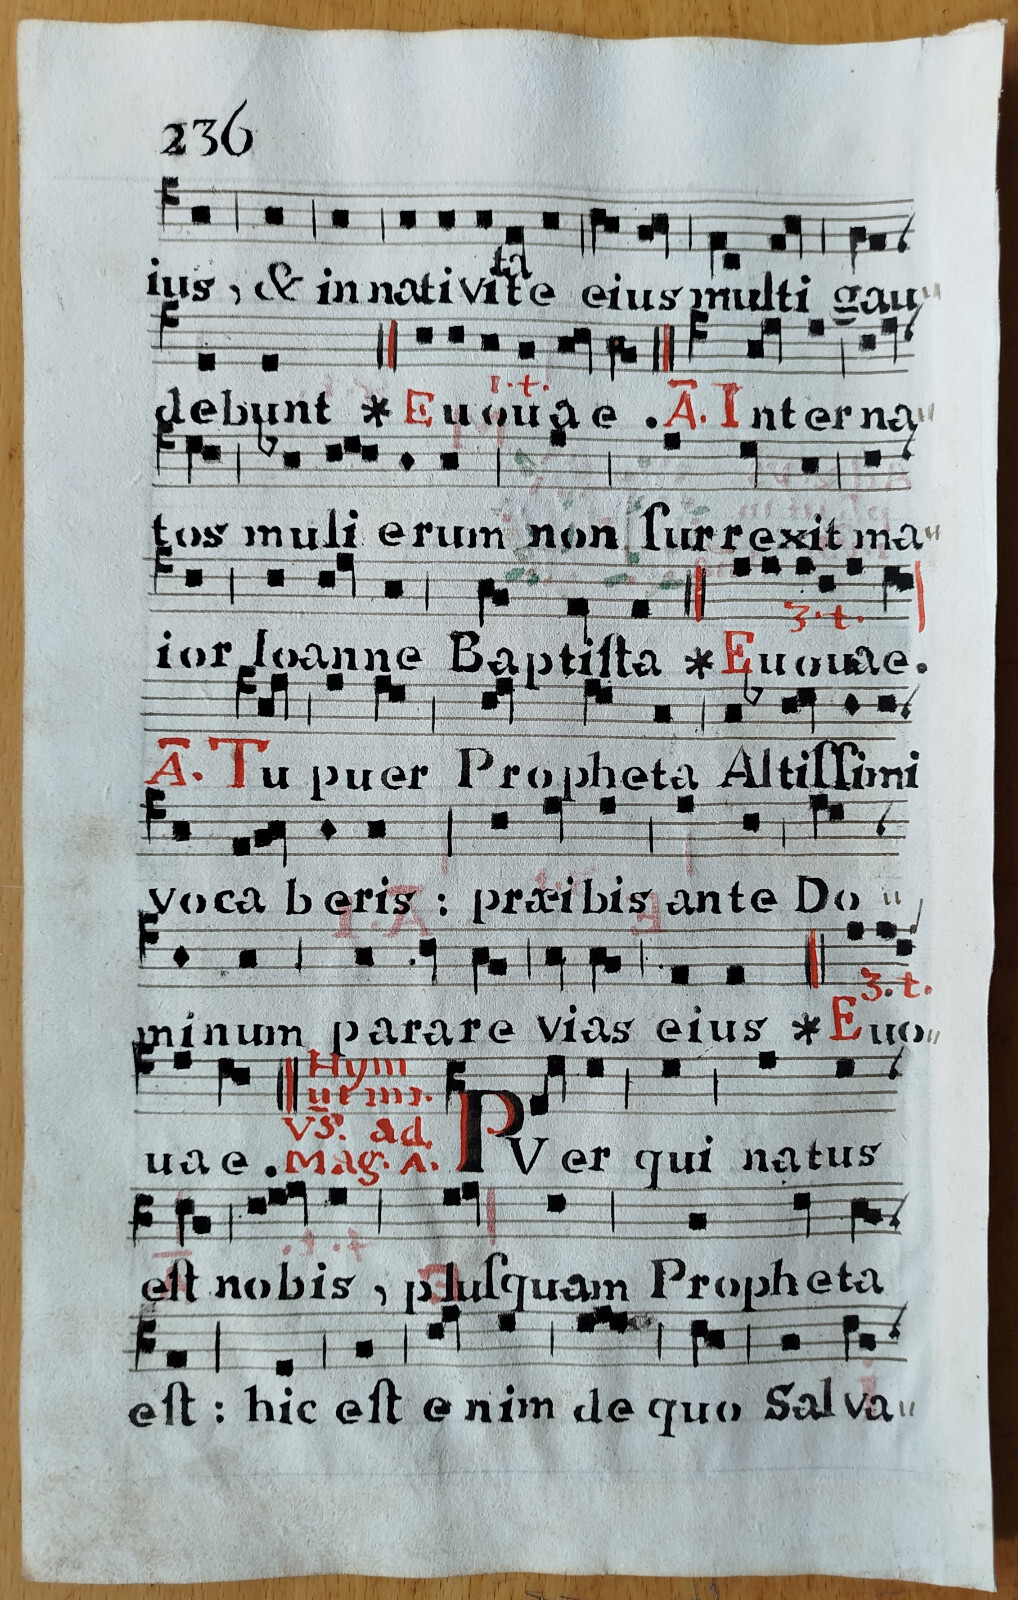 236
ta
ius, & in nativite eius multi gau"
1.t.
debunt * Euouae. Ā. Interna"
tos muli erum non ſurrexit ma"
3.t.
ior Ioanne Baptiſta * Euouae.
Ā. Tu puer Propheta Altiſſimi
voca beris : præibis ante Do "
3.t.
minum parare vias eius * Euo"
Hym
ut in 1.
VS. ad
uae. Mag. A. PVer qui natus
eſt nobis, pluſquam Propheta
eſt : hic eſt enim de quo Salva"